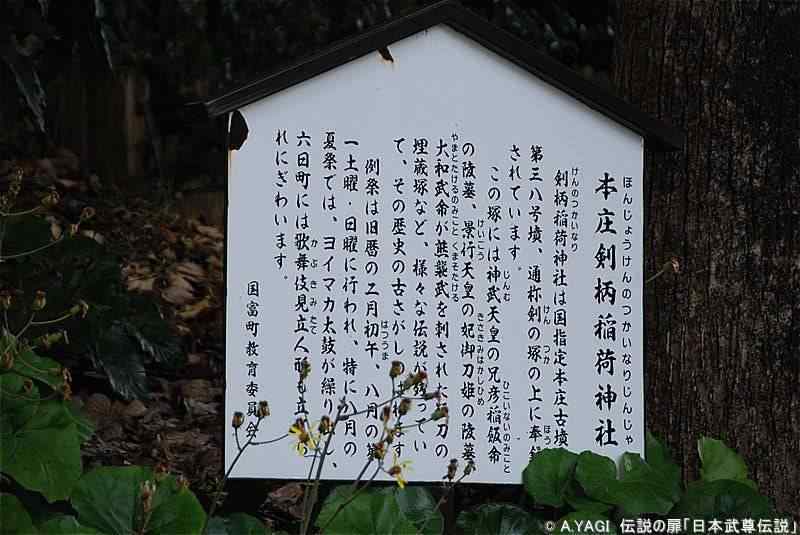 ほんじょうけんのつかいなりじんじゃ
本庄剣柄稲荷神社
けんのつかいなり
剣柄稲荷神社は国指定本庄古墳
けん つか ほう
第三八号墳、通称剣の塚の上に奉
されています。
じんむ ひこいないのみこと
この塚には神武天皇の兄彦稲飯命
けいこう きさきみはかしひめ
の陵墓、景行天皇の妃御刀姫の陵墓
やまとたけるのみこと くまそたける
大和武命が熊襲武を刺された 刀の
埋蔵塚など、様々な伝説が残ってい
て、その歴史の古さがし ます
はつうま
例祭は旧暦の二月初午、八月の第
一土曜・日曜に行われ、特に 月の
夏祭では、ヨイマカ太鼓が繰り 、
かぶきみたて
六日町には歌舞伎見立人形も立
れにぎわいます。
国富町教育委員会
© A.YAGI 伝説の扉「日本武尊伝説」